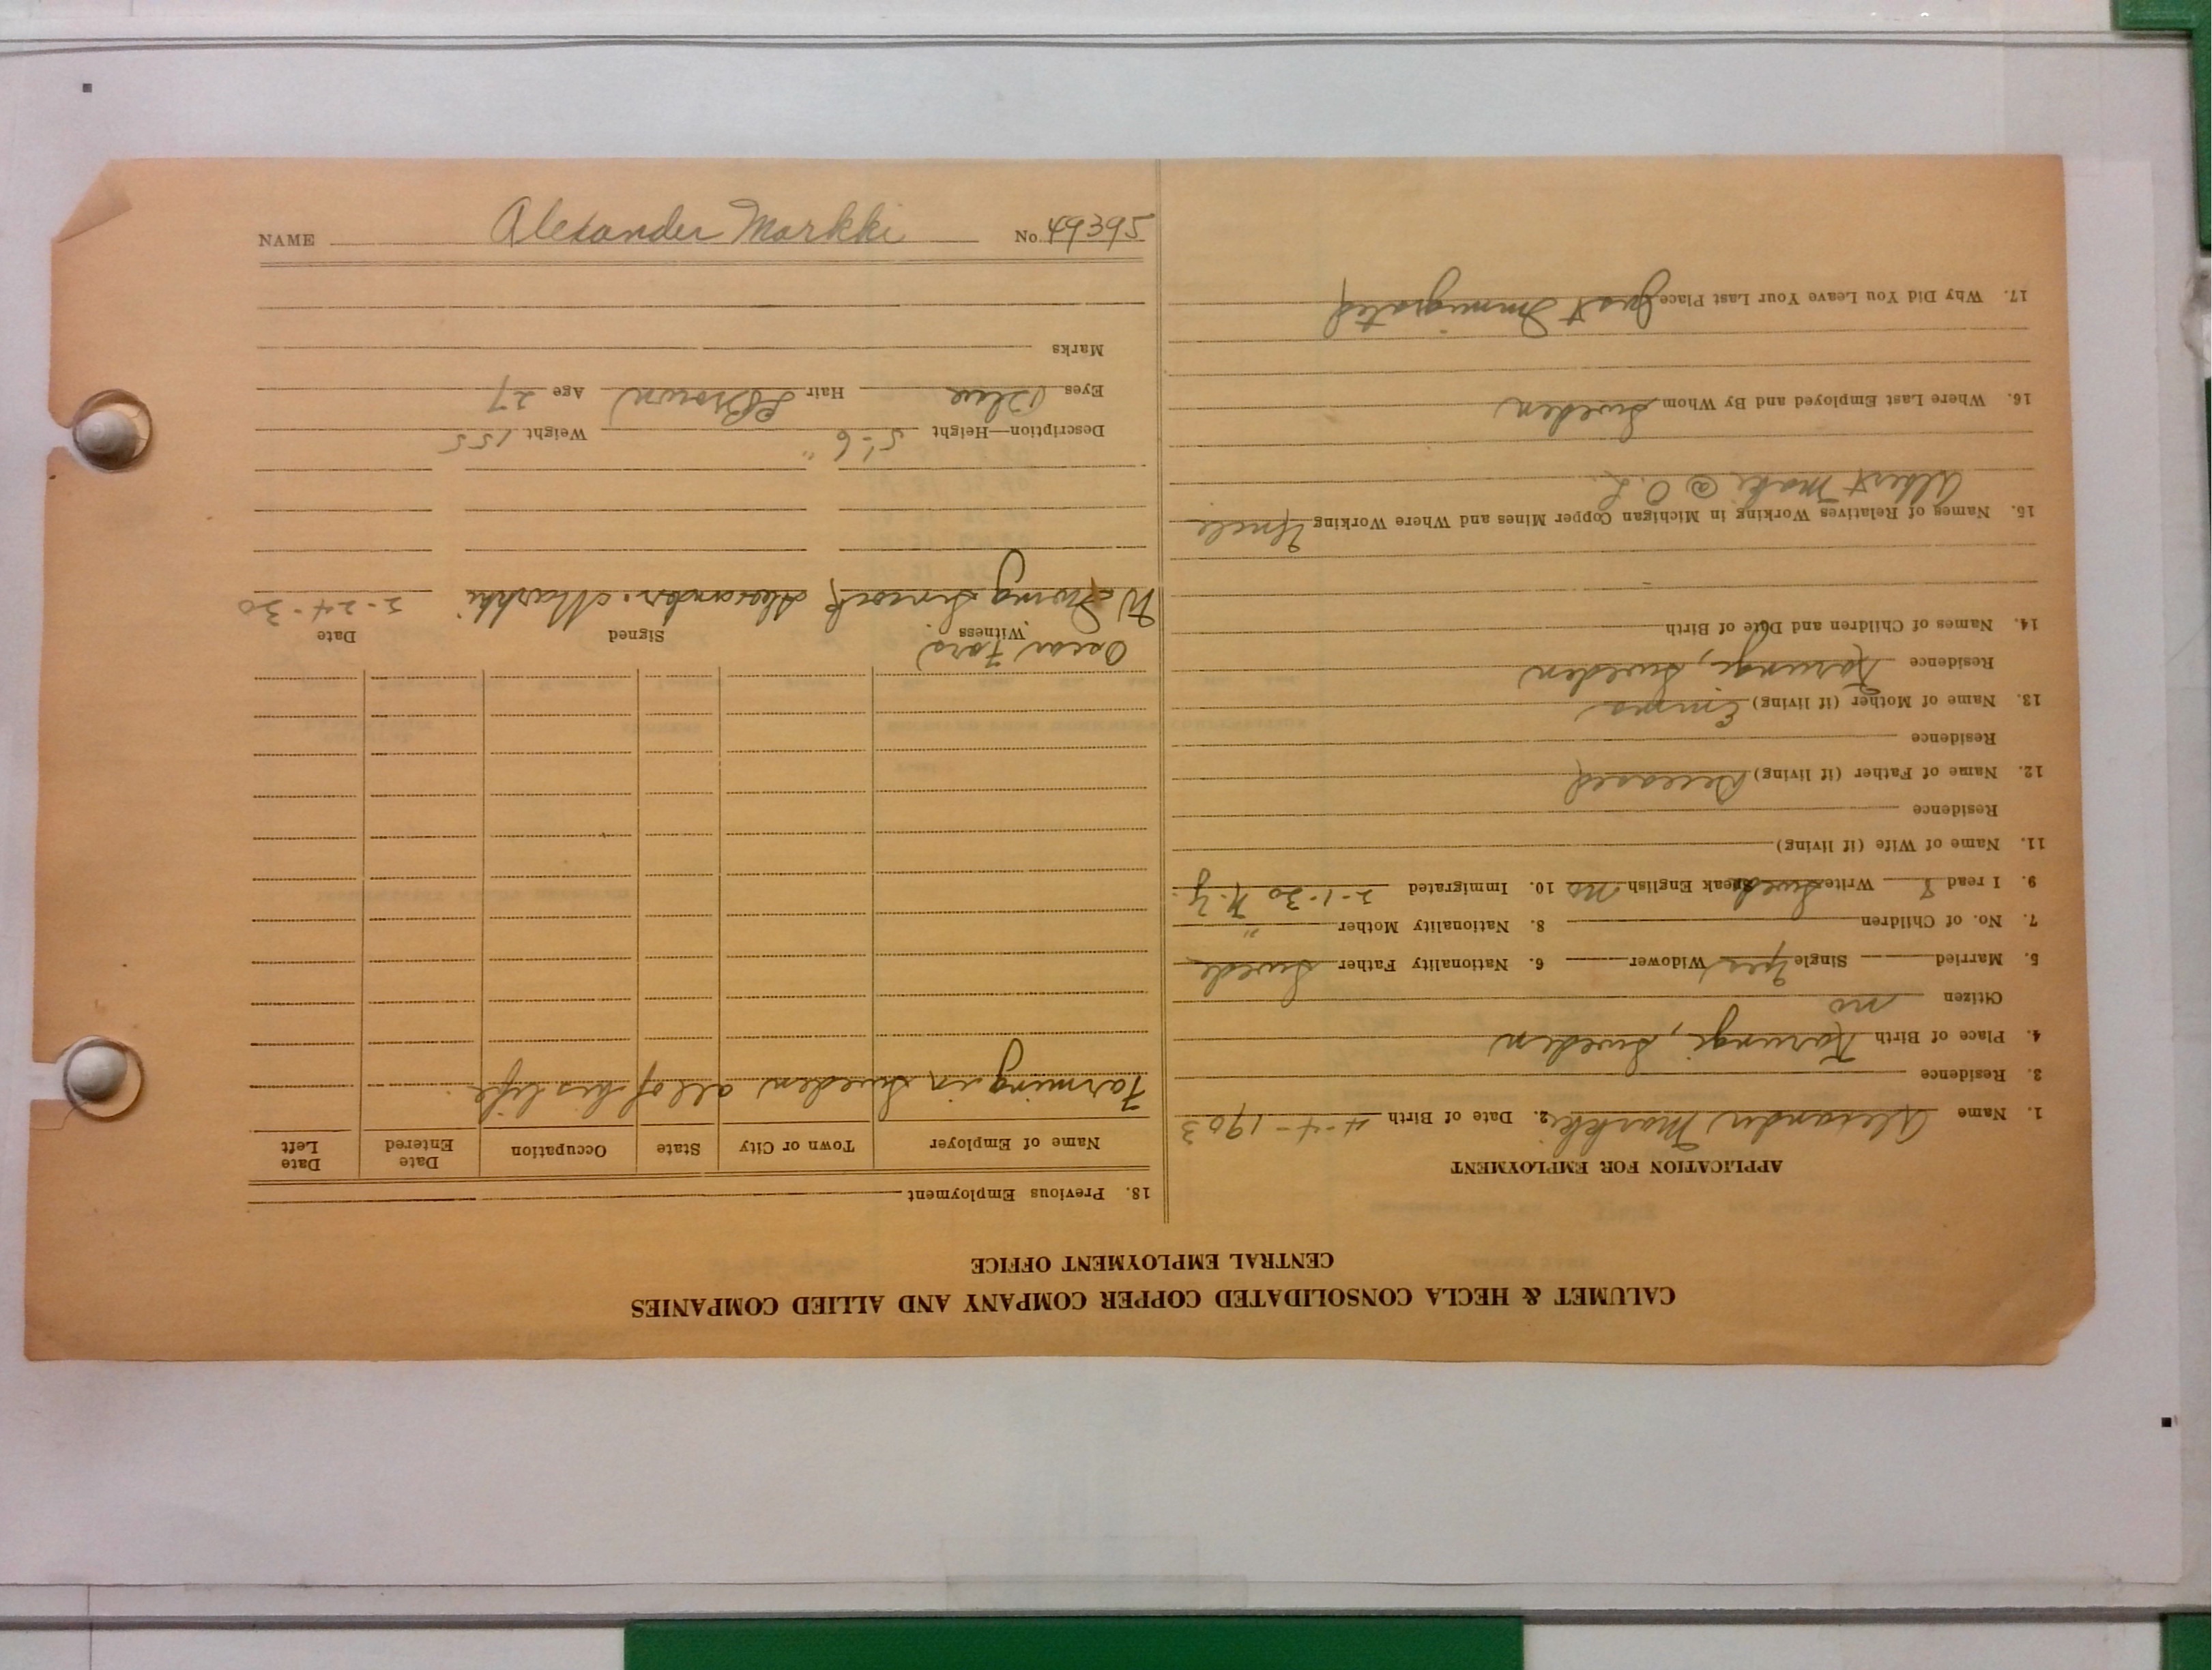 NAME Alexander Markki No. 49395
CALUMET & HECLA CONSOLIDATED COPPER COMPANY AND ALLIED COMPANIES
CENTRAL EMPLOYMENT OFFICE
APPLICATION FOR EMPLOYMENT
1. Name Alexander Markki 2. Date of Birth 4-4-1903
3. Residence
4. Place of Birth Karungi, Sweden
Citizen no
5. Married Single Yes Widower 6. Nationality Father Swede
7. No. of Children 8. Nationality Mother "
9. I read & Write Swede Speak English no 10. Immigrated 2-1-30 N.Y.
11. Name of Wife (if living)
Residence
12. Name of Father (if living) Deceased
Residence
13. Name of Mother (if living) Emma
Residence Karungi, Sweden
14. Names of Children and Date of Birth
15. Names of Relatives Working in Michigan Copper Mines and Where Working Uncle
Albert Maki @ O. L.
16. Where Last Employed and By Whom Sweden
17. Why Did You Leave Your Last Place Just Immigrated
18. Previous Employment
Name of Employer Town or City State Occupation Date Entered Date Left
Farming in Sweden all of his life.
Oscar Fors
Witness Signed Date
Alexander. Markki 2-24-30
Description—Height 5'-6" Weight 155
Eyes Blue Hair L Brown Age 27
Marks